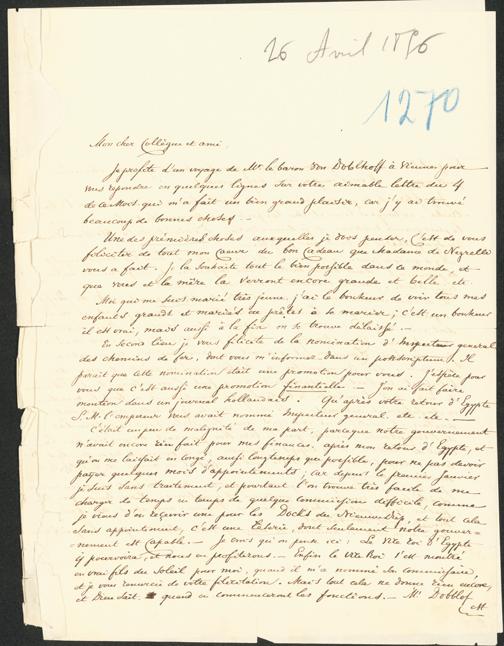 26 Avril 1856
1270
Mon cher Collègue et ami.
Je profite d'un voyage de Mr. le baron von Doblhoff à Vienne, pour
vous repondre en quelques lignes sur votre aimable lettre du 4
de ce Mois qui m'a fait un bien grand plaisir, car j'y ai trouvé
beaucoup de bonnes choses. —
Une des premières choses auxquelles je dois penser, C'est de vous
feliciter de tout mon Cœur du bon Cadeau que Madame de Negrelli
vous a fait. Je la souhaite tout le bien possible dans ce monde, et
que vous et la mère la verront encore grande et belle etc.
Moi qui me suis marié très jeune, j'ai le bonheur de voir tous mes
enfants grands et mariés ou prêtes à se marier; c'est un bonheur
il est vrai, mais aussi à la fin on se trouve délaissé. —
En second lieu je vous felicite de la nomination d'Inspecteur general
des chemins de fer, dont vous m'informez dans un postscriptum. Il
parait que cette nomination était une promotion pour vous. J'espère pour
vous que c'est aussi une promotion finantielle. — J'en ai fait faire
mention dans un journal hollandais. Qu'après votre retour d'Egypte
S. M. l'Empereur vous avait nommé Inspecteur general etc. etc. —
C'était un peu de malignité de ma part, parceque notre gouvernement
n'avait encore rien fait pour mes finances, après mon retour d'Egypte, et
qu'on me laissait en congé, aussi longtemps que possible, pour ne pas devoir
payer quelques mois d'appointements; car depuis le premier janvier
je suis sans traitement, et pourtant l'on trouve très facile de me
charger de temps en temps de quelque commission difficile, comme
je viens d'en reçevoir une pour les Docks du Nieuwediep, et tout cela
sans appointement, c'est une dont seulement notre gouver-
nement est Capable. — Je crois qu'on pense ici: Le Vice Roi d'Egypte
y pourvoira, et nous en profiterons. — Enfin le Vice Roi s'est montré
en vrai fils du Soleil pour moi, quand il m'a nommé son Commissaire,
et je vous remercie de votre felicitation. Mais tout cela ne donne rien encore,
et Dieu sait quand en commenceront les fonctions. — Mr. Doblhof